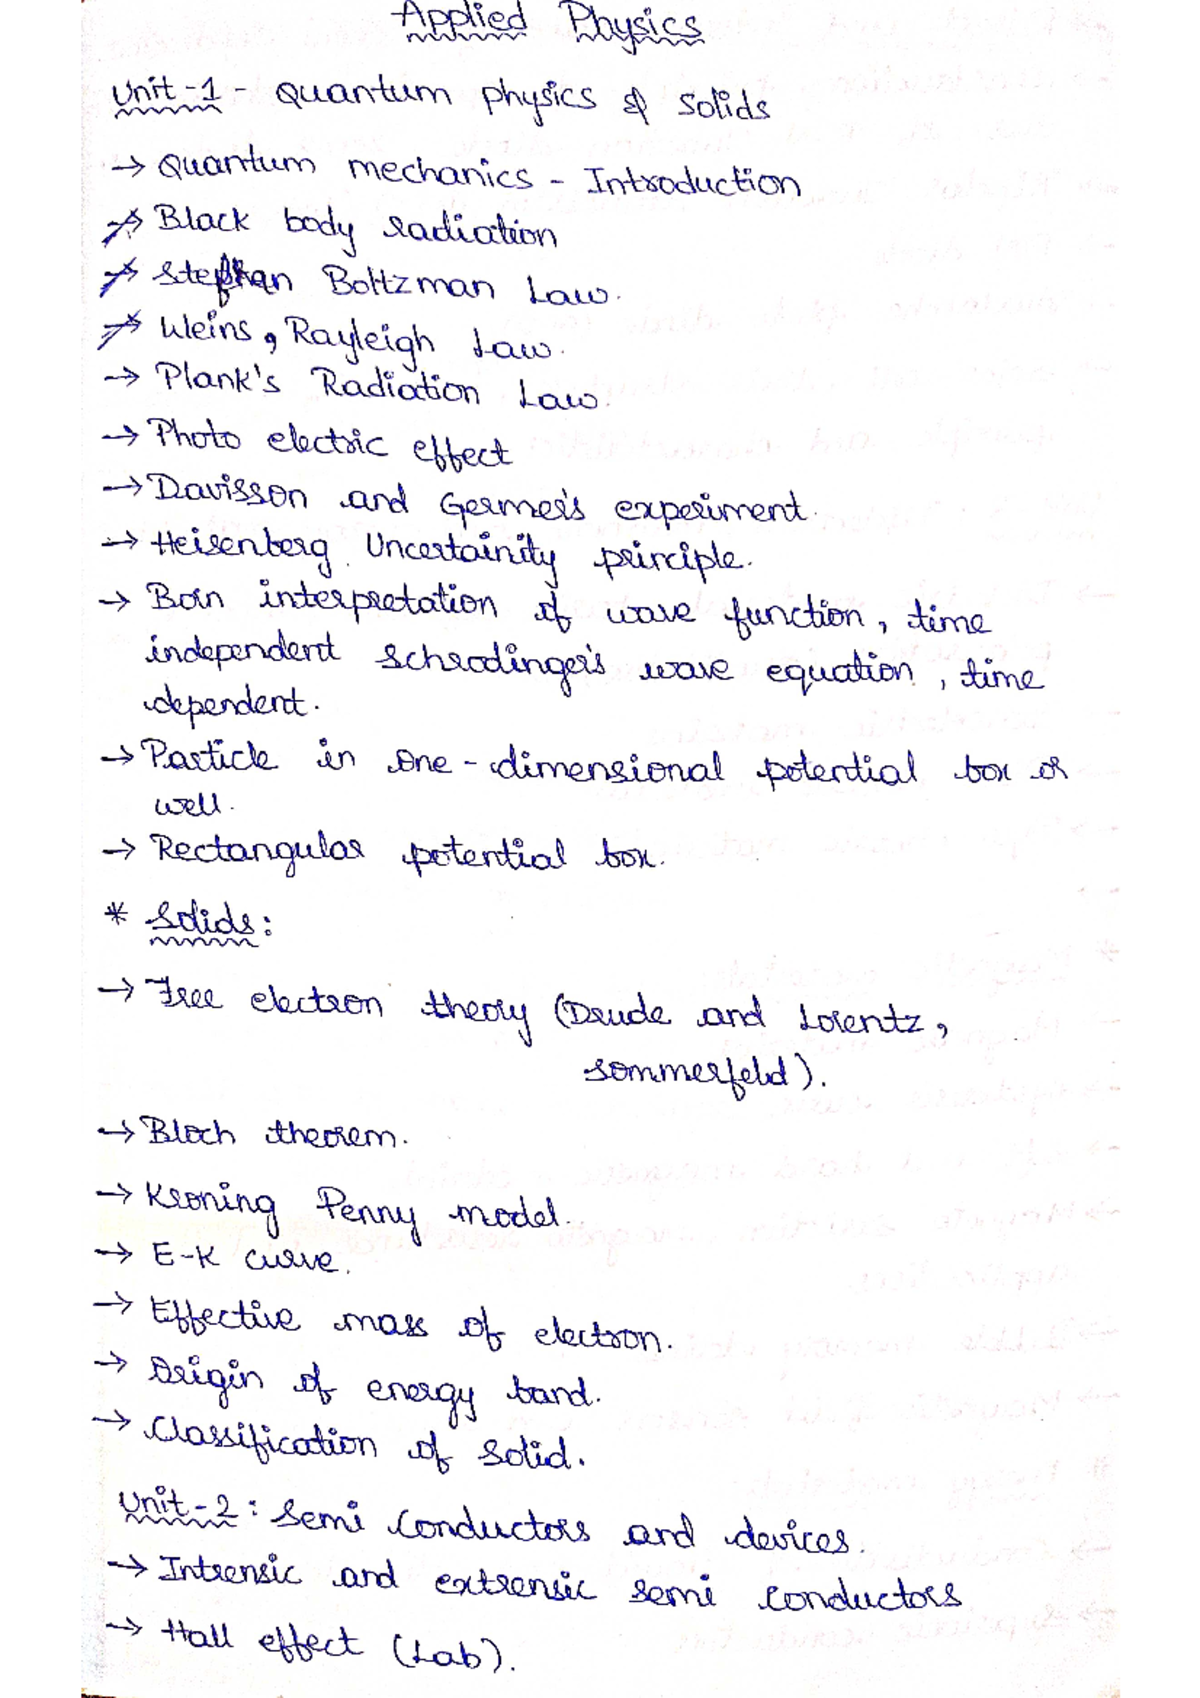 Applied Physics
Unit-1 - Quantum physics & Solids
→ Quantum mechanics - Introduction
→ Black body radiation
→ Stephan Boltzman Law.
→ Weins, Rayleigh Law.
→ Plank's Radiation Law.
→ Photo electric effect
→ Davisson and Germer's experiment.
→ Heisenberg Uncertainity principle.
→ Born interpretation of wave function, time
independent Schrodinger's wave equation, time
dependent.
→ Particle in one-dimensional potential box or
well.
→ Rectangular potential box.
* Solids:
→ Free electron theory (Drude and Lorentz,
Sommerfeld).
→ Bloch theorem.
→ Kroning Penny model.
→ E-K curve.
→ Effective mass of electron.
→ Origin of energy band.
→ Classification of solid.
Unit-2: Semi Conductors and devices.
→ Intrensic and extrensic semi conductors
→ Hall effect (Lab).